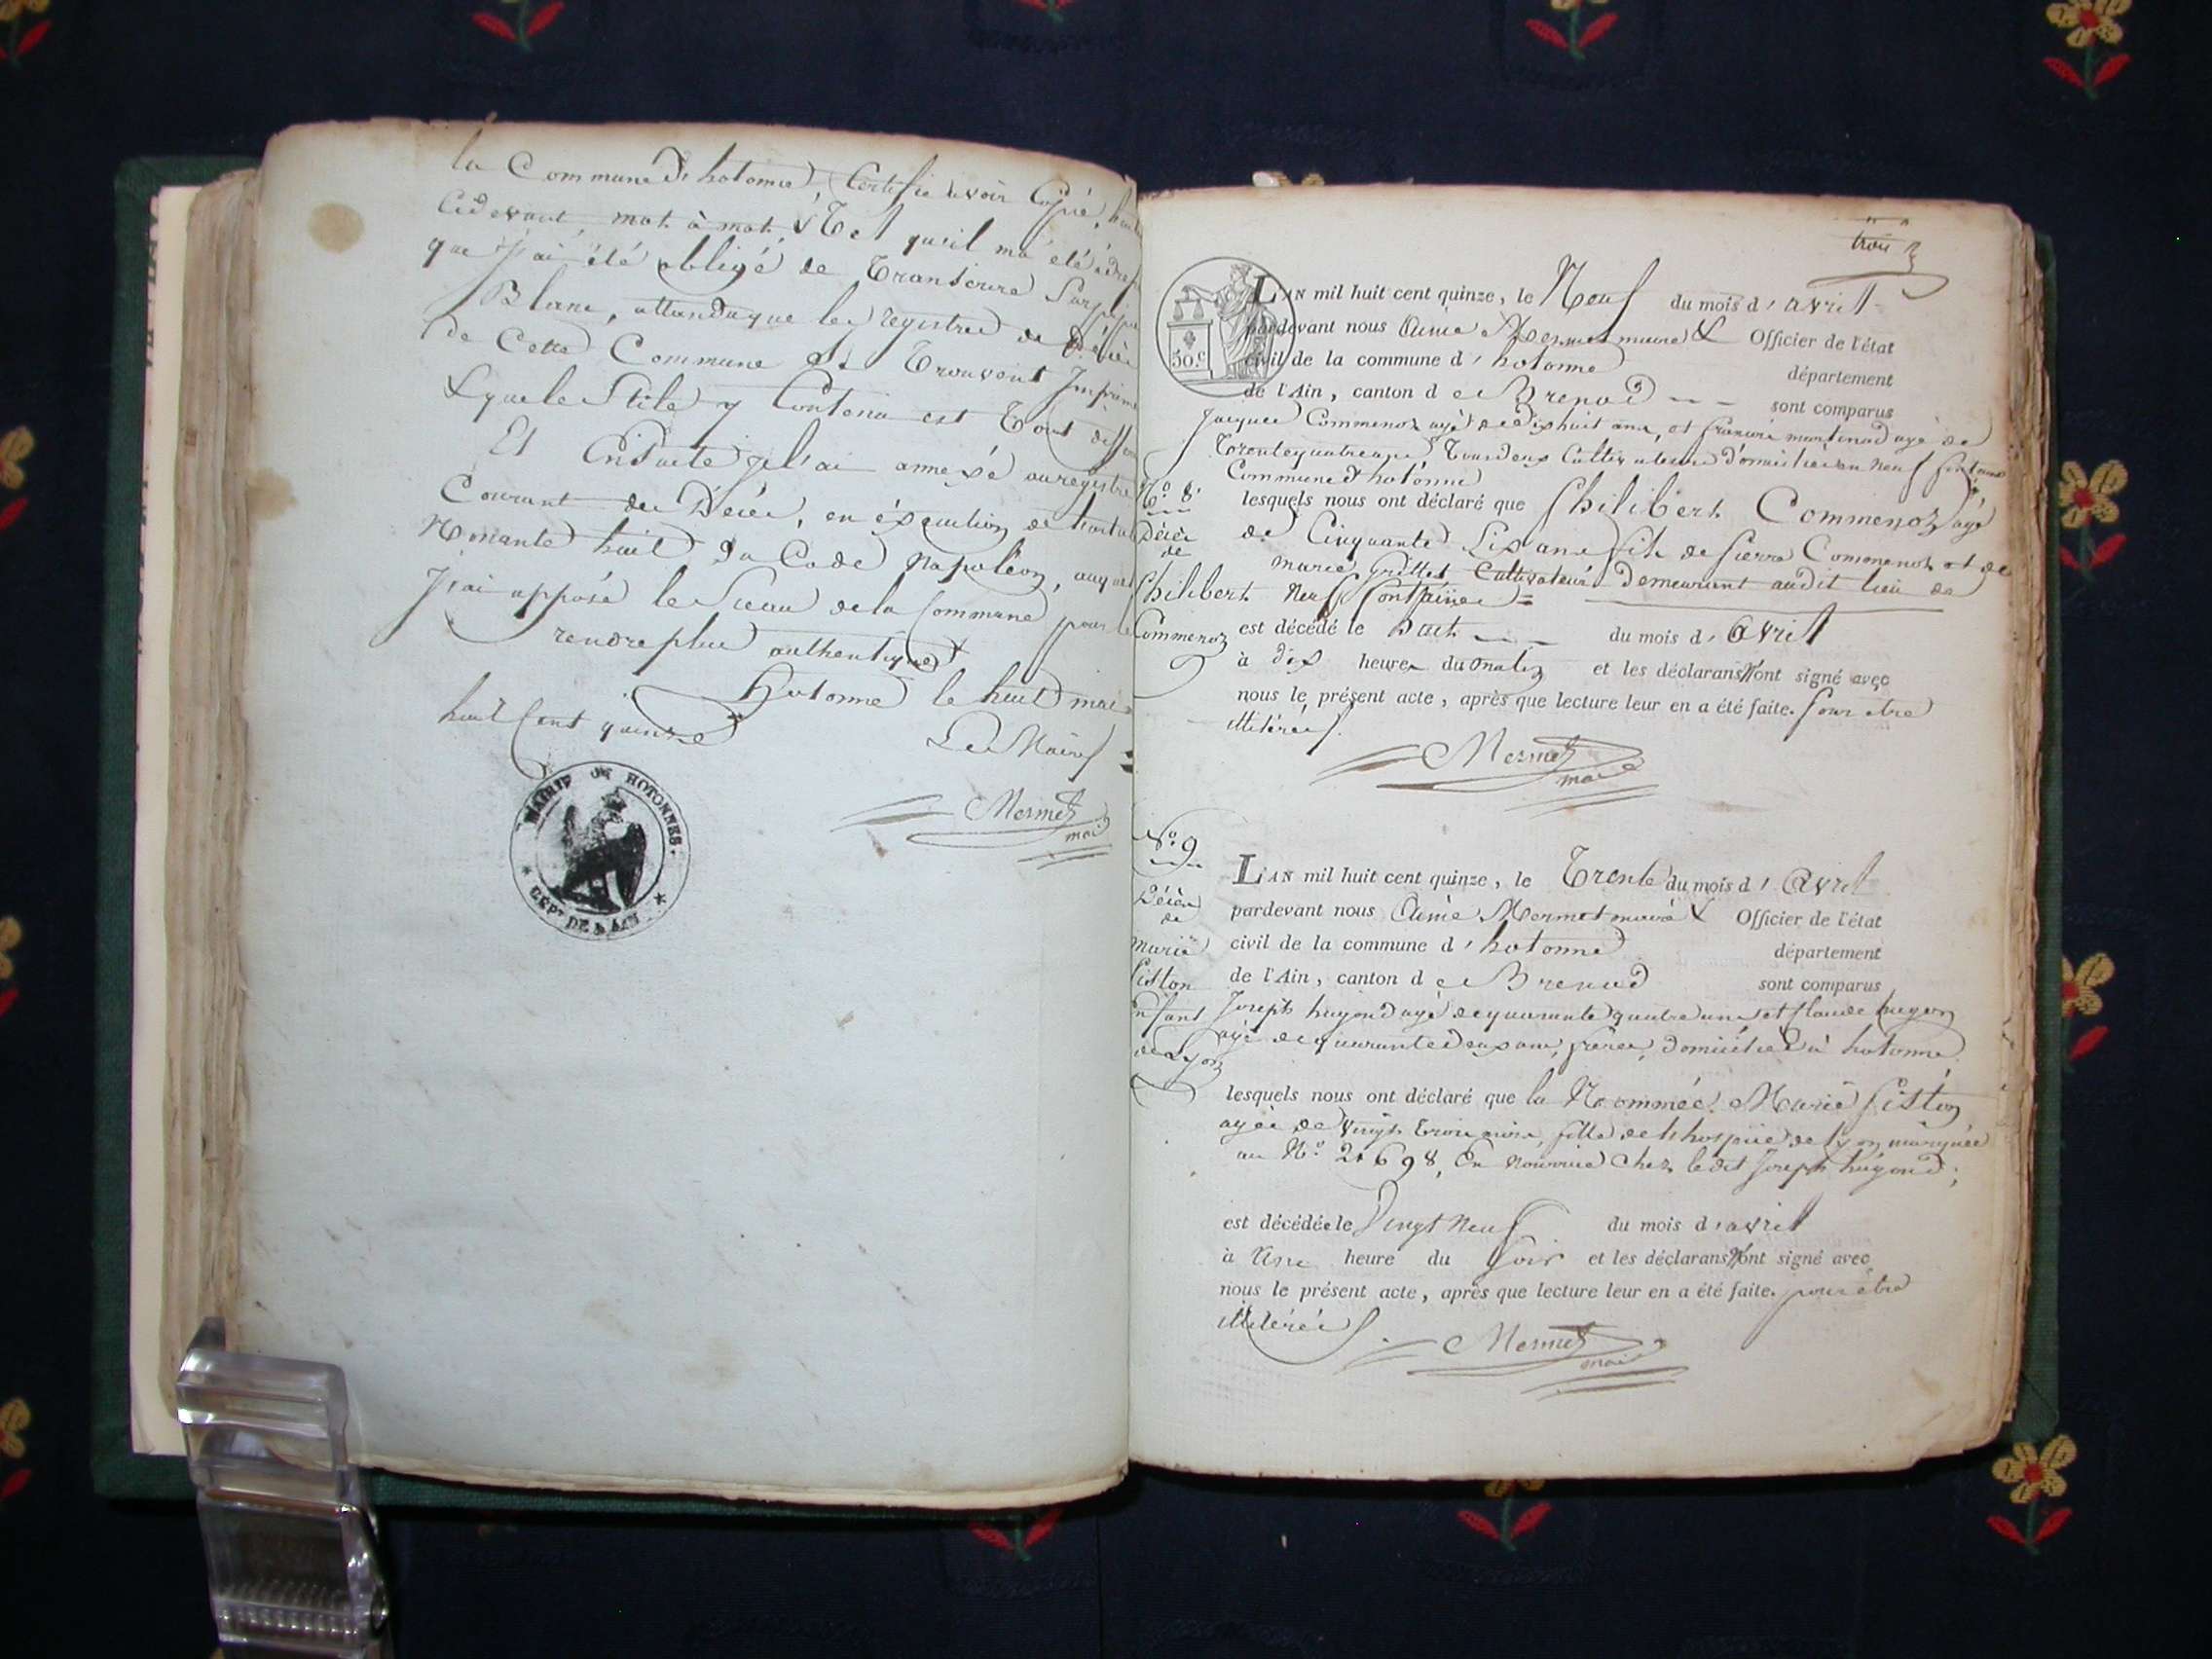 la Commune d'hotonne, Certifie avoir Copié,
Cidevant, mot à mot & Tel qu'il m'a été
que J'ai été obligé de Transcrire Sur
Blanc, attenduque les registres de Décès
de Cette Commune se Trouvent Imprimé
& que le Stile y Contenu est Tout
Et Ensuite je l'ai annexé au registre
Courant des Décès, en éxécution de
Nonante huit du Code Napoléon, auquel
J'ai apposé le Sceau de la Commune pour le
rendre plus authentique
hotonne le huit mai
huit Cent quinze
Le Maire
Mermet
maire
MAIRIE DE HOTONNES.
DEPT. DE L'AIN
trois
50.c
L'AN mil huit cent quinze, le Neuf du mois d'avril
pardevant nous Aimé Mermet maire & Officier de l'état
civil de la commune d'hotonne département
de l'Ain, canton de Brenod sont comparus
Jacques Commenoz agé de dixhuit ans, et françois martinod agé de
Trentequatre ans Tous deux Cultivateurs domiciliés en Neuf fontaines
Commune d'hotonne
N.o 8.
Décès
de
Philibert
Commenoz
lesquels nous ont déclaré que Philibert Commenoz agé
de Cinquante Six ans fils de Pierre Commenoz et de
marie Grillet Cultivateur demeurant audit lieu de
Neuf Fontaines
est décédé le huit du mois d'Avril
à dix heures du matin et les déclarans N'ont signé avec
nous le présent acte, après que lecture leur en a été faite. Pour être
illitérés.
Mermet
maire
N.o 9
Décès
de
Marie
Piston
Enfant
de Lyon
L'AN mil huit cent quinze, le Trente du mois d'Avril
pardevant nous Aimé Mermet maire & Officier de l'état
civil de la commune d'hotonne département
de l'Ain, canton de Brenod sont comparus
Joseph hugond agé de quarante quatre ans et Claude hugon
agé de quarante deux ans, frères, domiciliés à hotonne.
lesquels nous ont déclaré que la Nommée Marie Piston
agée de Vingt Trois mois, fille de l'hospice de Lyon marquée
au N.o 21698, En Nourrice Chez ledit Joseph hugond;
est décédée le Vingt Neuf du mois d'avril
à Une heure du Soir et les déclarans N'ont signé avec
nous le présent acte, après que lecture leur en a été faite. pour être
illitérés.
Mermet
maire